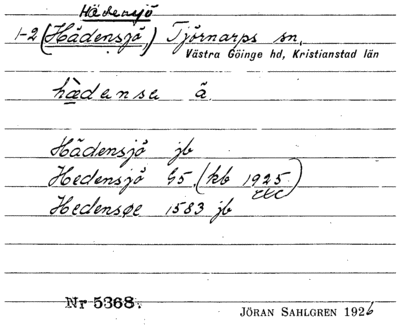 Hädensjö
1-2 (Hädensjö) Tjörnarps sn,
Västra Göinge hd, Kristianstad län
hàdensa ā.
Hädensjö jb
Hedensjö G5. (kb 1925 etc)
Hedensøe 1583 jb
Nr 5368.
JÖRAN SAHLGREN 1926